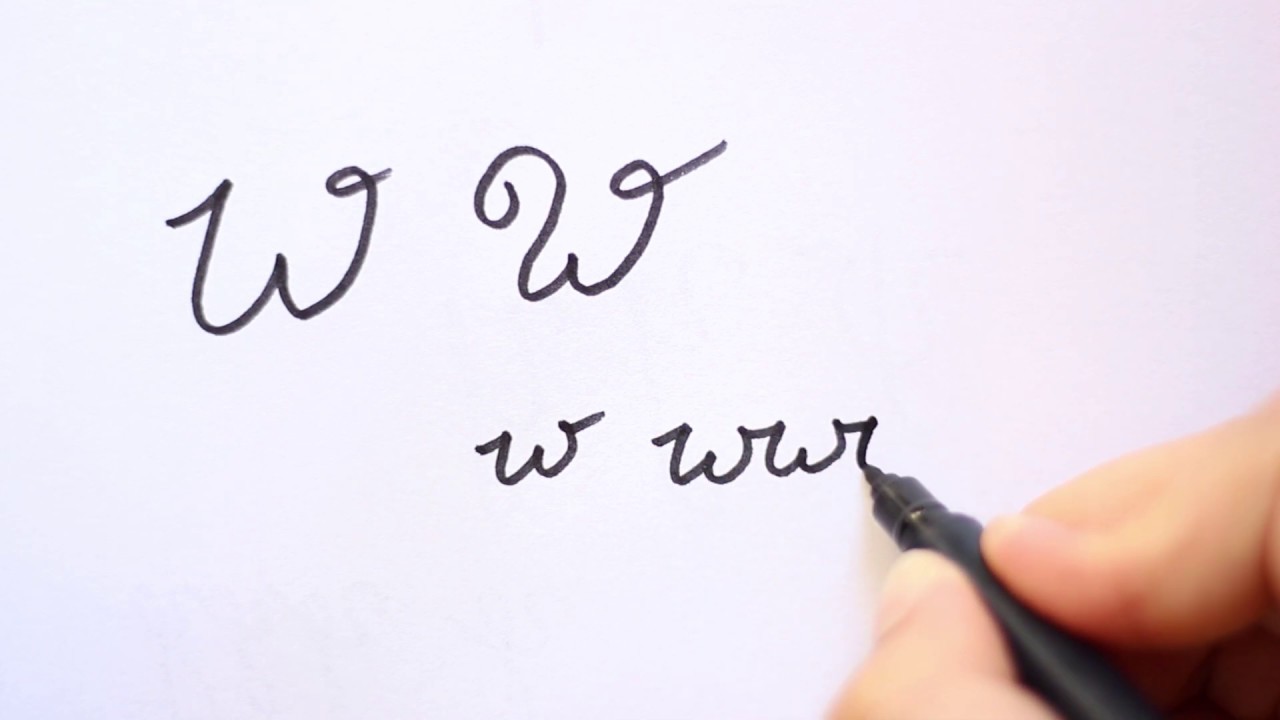 W W
w ww